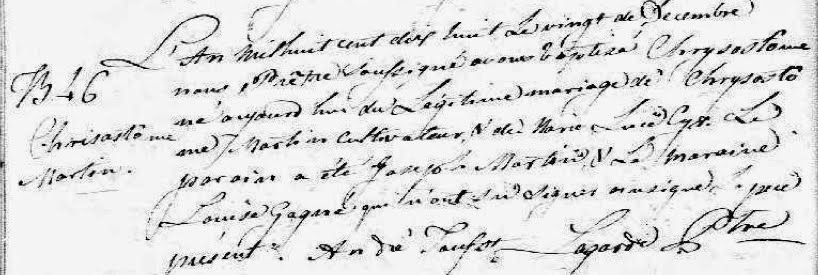 B 46
Chrisastome
Martin.
L'An mil huit cent dix huit Le vingt de Decembre
nous Prêtre Soussigné avons Baptisé Chrysostome
né aujourd hui du Légitime mariage de Chrysosto
me Martin Cultivateur & de Marie Luce Cyr. Le
parain a été Joseph Martin & La maraine
Louise Gagné qui n'ont su signer ainsi que le pere
présent. André Lagarde Ptre